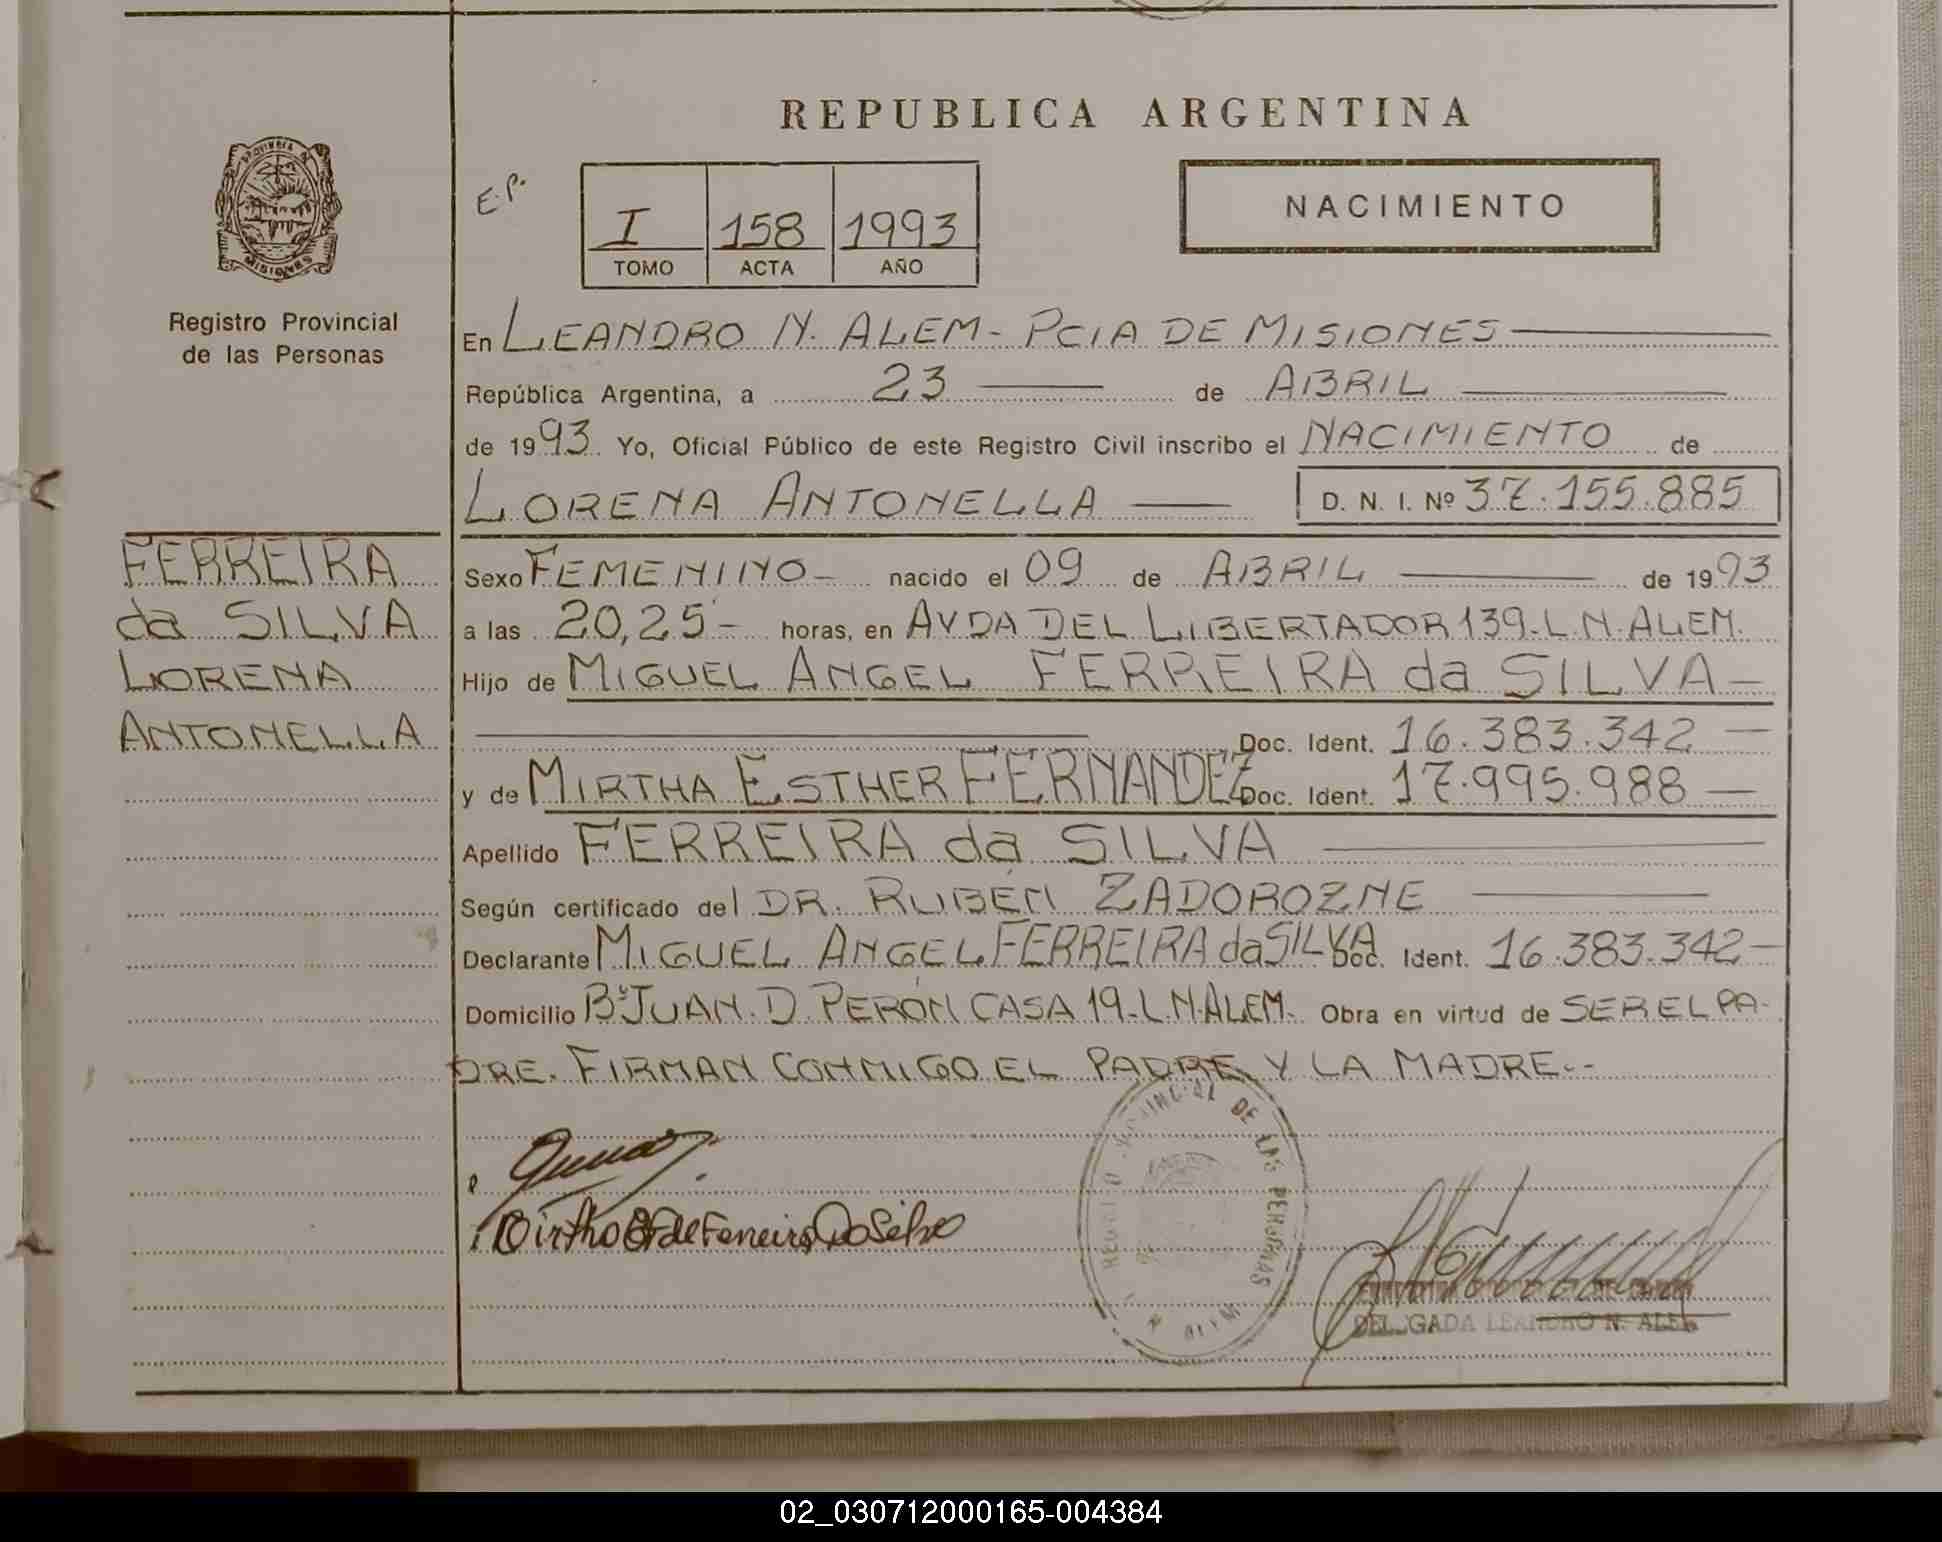 REPUBLICA ARGENTINA
PROVINCIA DE
MISIONES
Registro Provincial
de las Personas
E.P.
I 158 1993
TOMO ACTA AÑO
NACIMIENTO
En LEANDRO N. ALEM - PCIA DE MISIONES
República Argentina, a 23 de ABRIL
de 1993. Yo, Oficial Público de este Registro Civil inscribo el NACIMIENTO de
LORENA ANTONELLA D. N. I. Nº 37.155.885
FERREIRA
da SILVA
LORENA
ANTONELLA
Sexo FEMENINO - nacido el 09 de ABRIL de 1993
a las 20,25 - horas, en AVDA DEL LIBERTADOR 139-L.N.ALEM.
Hijo de MIGUEL ANGEL FERREIRA da SILVA -
Doc. Ident. 16.383.342 -
y de MIRTHA ESTHER FERNANDEZ Doc. Ident. 17.995.988 -
Apellido FERREIRA da SILVA
Según certificado del DR. RUBÉN ZADOROZNE
Declarante MIGUEL ANGEL FERREIRA da SILVA Doc. Ident. 16.383.342 -
Domicilio Bº JUAN. D. PERÓN CASA 19-L.N.ALEM. Obra en virtud de SER EL PA-
DRE. FIRMAN CONMIGO EL PADRE Y LA MADRE.-
DE LAS PERSONAS
LEANDRO N. ALEM
02_030712000165-004384